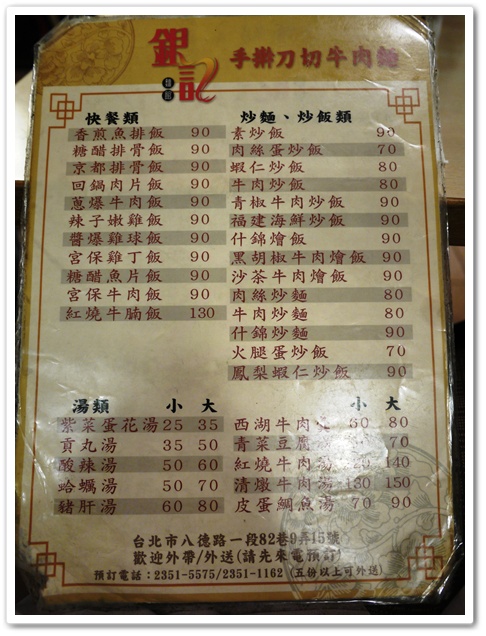 銀記
手擀刀切牛肉麵
快餐類
香煎魚排飯 90
糖醋排骨飯 90
京都排骨飯 90
回鍋肉片飯 90
蔥爆牛肉飯 90
辣子嫩雞飯 90
醬爆雞球飯 90
宮保雞丁飯 90
糖醋魚片飯 90
宮保牛肉飯 90
紅燒牛腩飯 130
炒麵、炒飯類
素炒飯 90
肉絲蛋炒飯 70
蝦仁炒飯 80
牛肉炒飯 80
青椒牛肉炒飯 90
福建海鮮炒飯 90
什錦燴飯 90
黑胡椒牛肉燴飯 90
沙茶牛肉燴飯 90
肉絲炒麵 80
牛肉炒麵 80
什錦炒麵 90
火腿蛋炒飯 70
鳳梨蝦仁炒飯 90
湯類 小 大
紫菜蛋花湯 25 35
貢丸湯 35 50
酸辣湯 50 60
蛤蠣湯 50 70
豬肝湯 60 80
小 大
西湖牛肉 80
青菜豆腐 70
紅燒牛肉湯 140
清燉牛肉湯 150
皮蛋鯛魚湯 70 90
台北市八德路一段82巷9弄15號
歡迎外帶/外送(請先來電預訂)
預訂電話：2351-5575/2351-1162 (五份以上可外送)